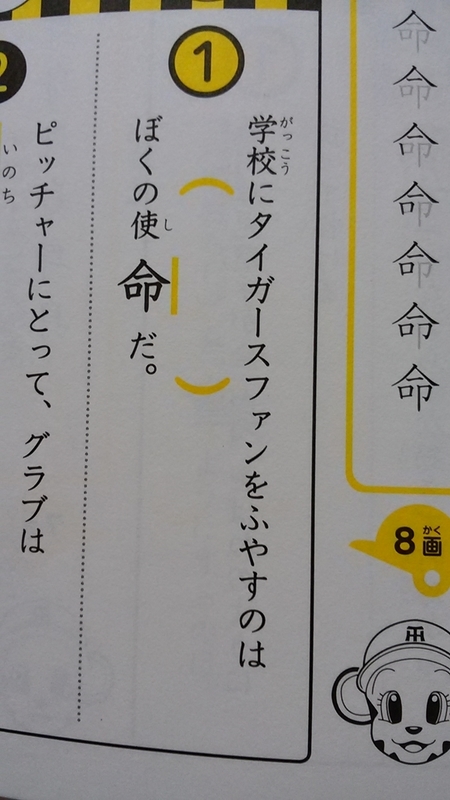 命
命
命
命
命
命
命
8画
かく
TH
1
学校にタイガースファンをふやすのは
がっこう
ぼくの使命だ。
し
(　　)
2
ピッチャーにとって、グラブは
いのち